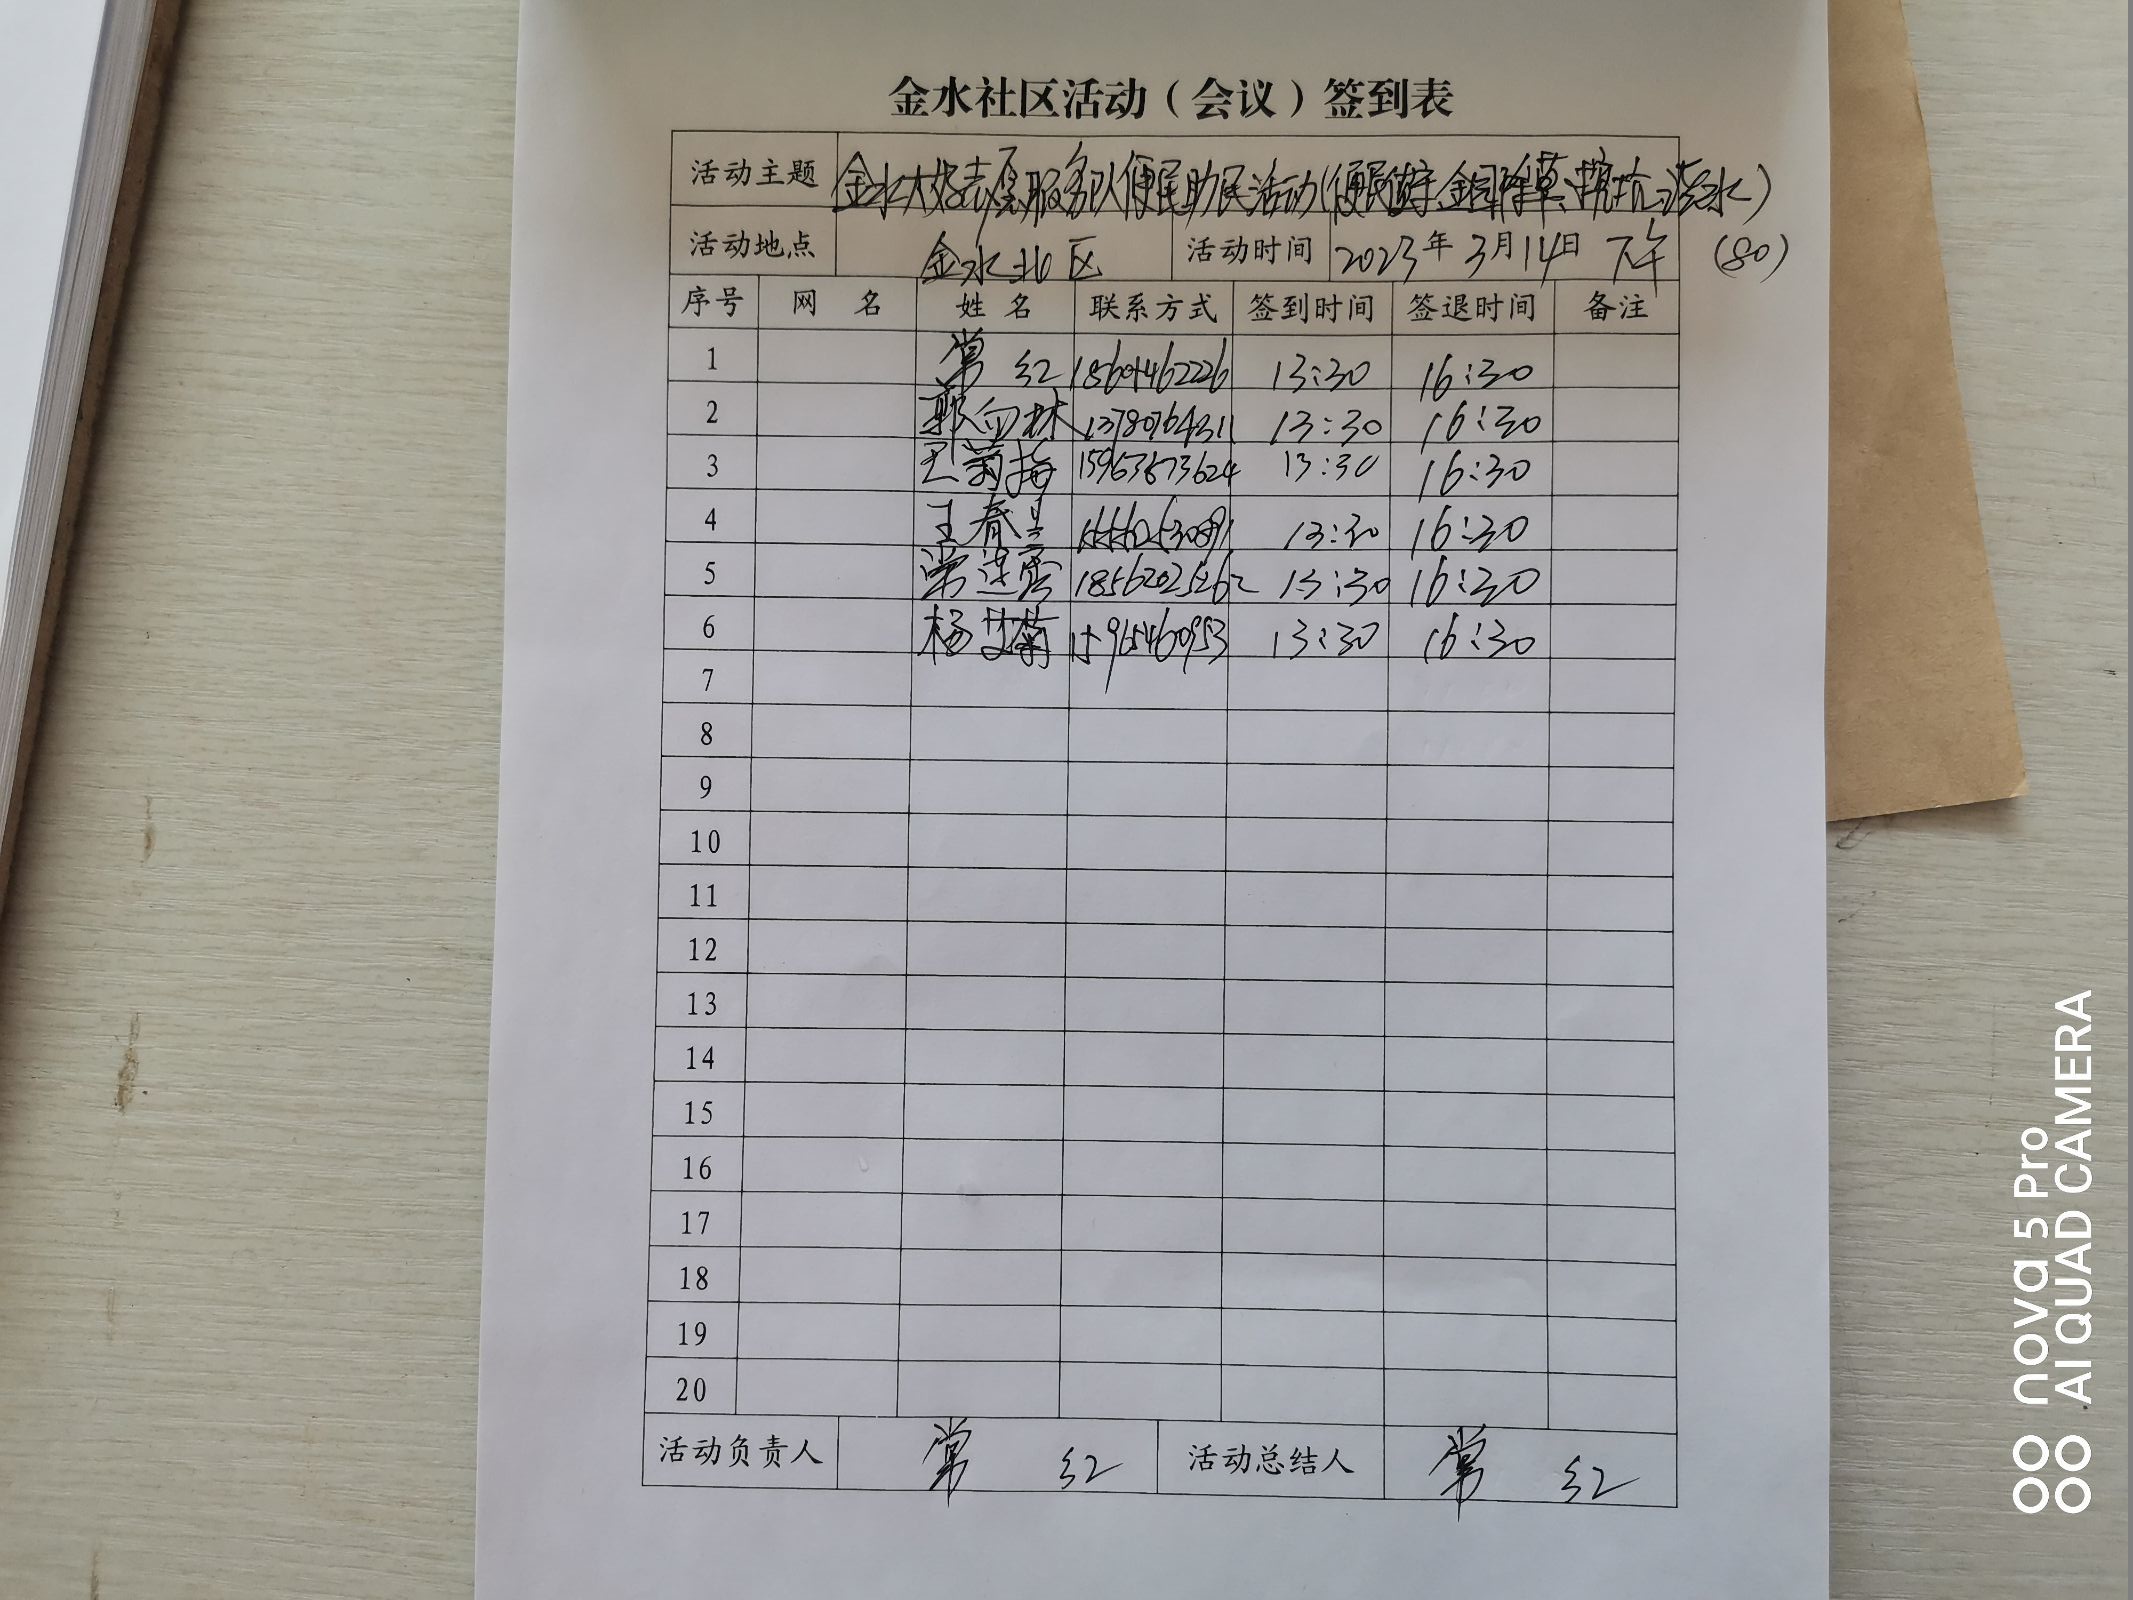 金水社区活动（会议）签到表
活动主题 金水大嫂志愿服务队便民助民活动(便民 除草 浇水)
活动地点 金水北区 活动时间 2023年3月14日 下午 (80)
序号 网名 姓名 联系方式 签到时间 签退时间 备注
1 常红 18601462226 13:30 16:30
2 郭向林 13780764311 13:30 16:30
3 菊梅 15963673624 13:30 16:30
4 王春兰 13:30 16:30
5 常莲香 18562025262 13:30 16:30
6 杨艾菊 15965460953 13:30 16:30
7
8
9
10
11
12
13
14
15
16
17
18
19
20
活动负责人 常红 活动总结人 常红
nova 5 Pro
AI QUAD CAMERA